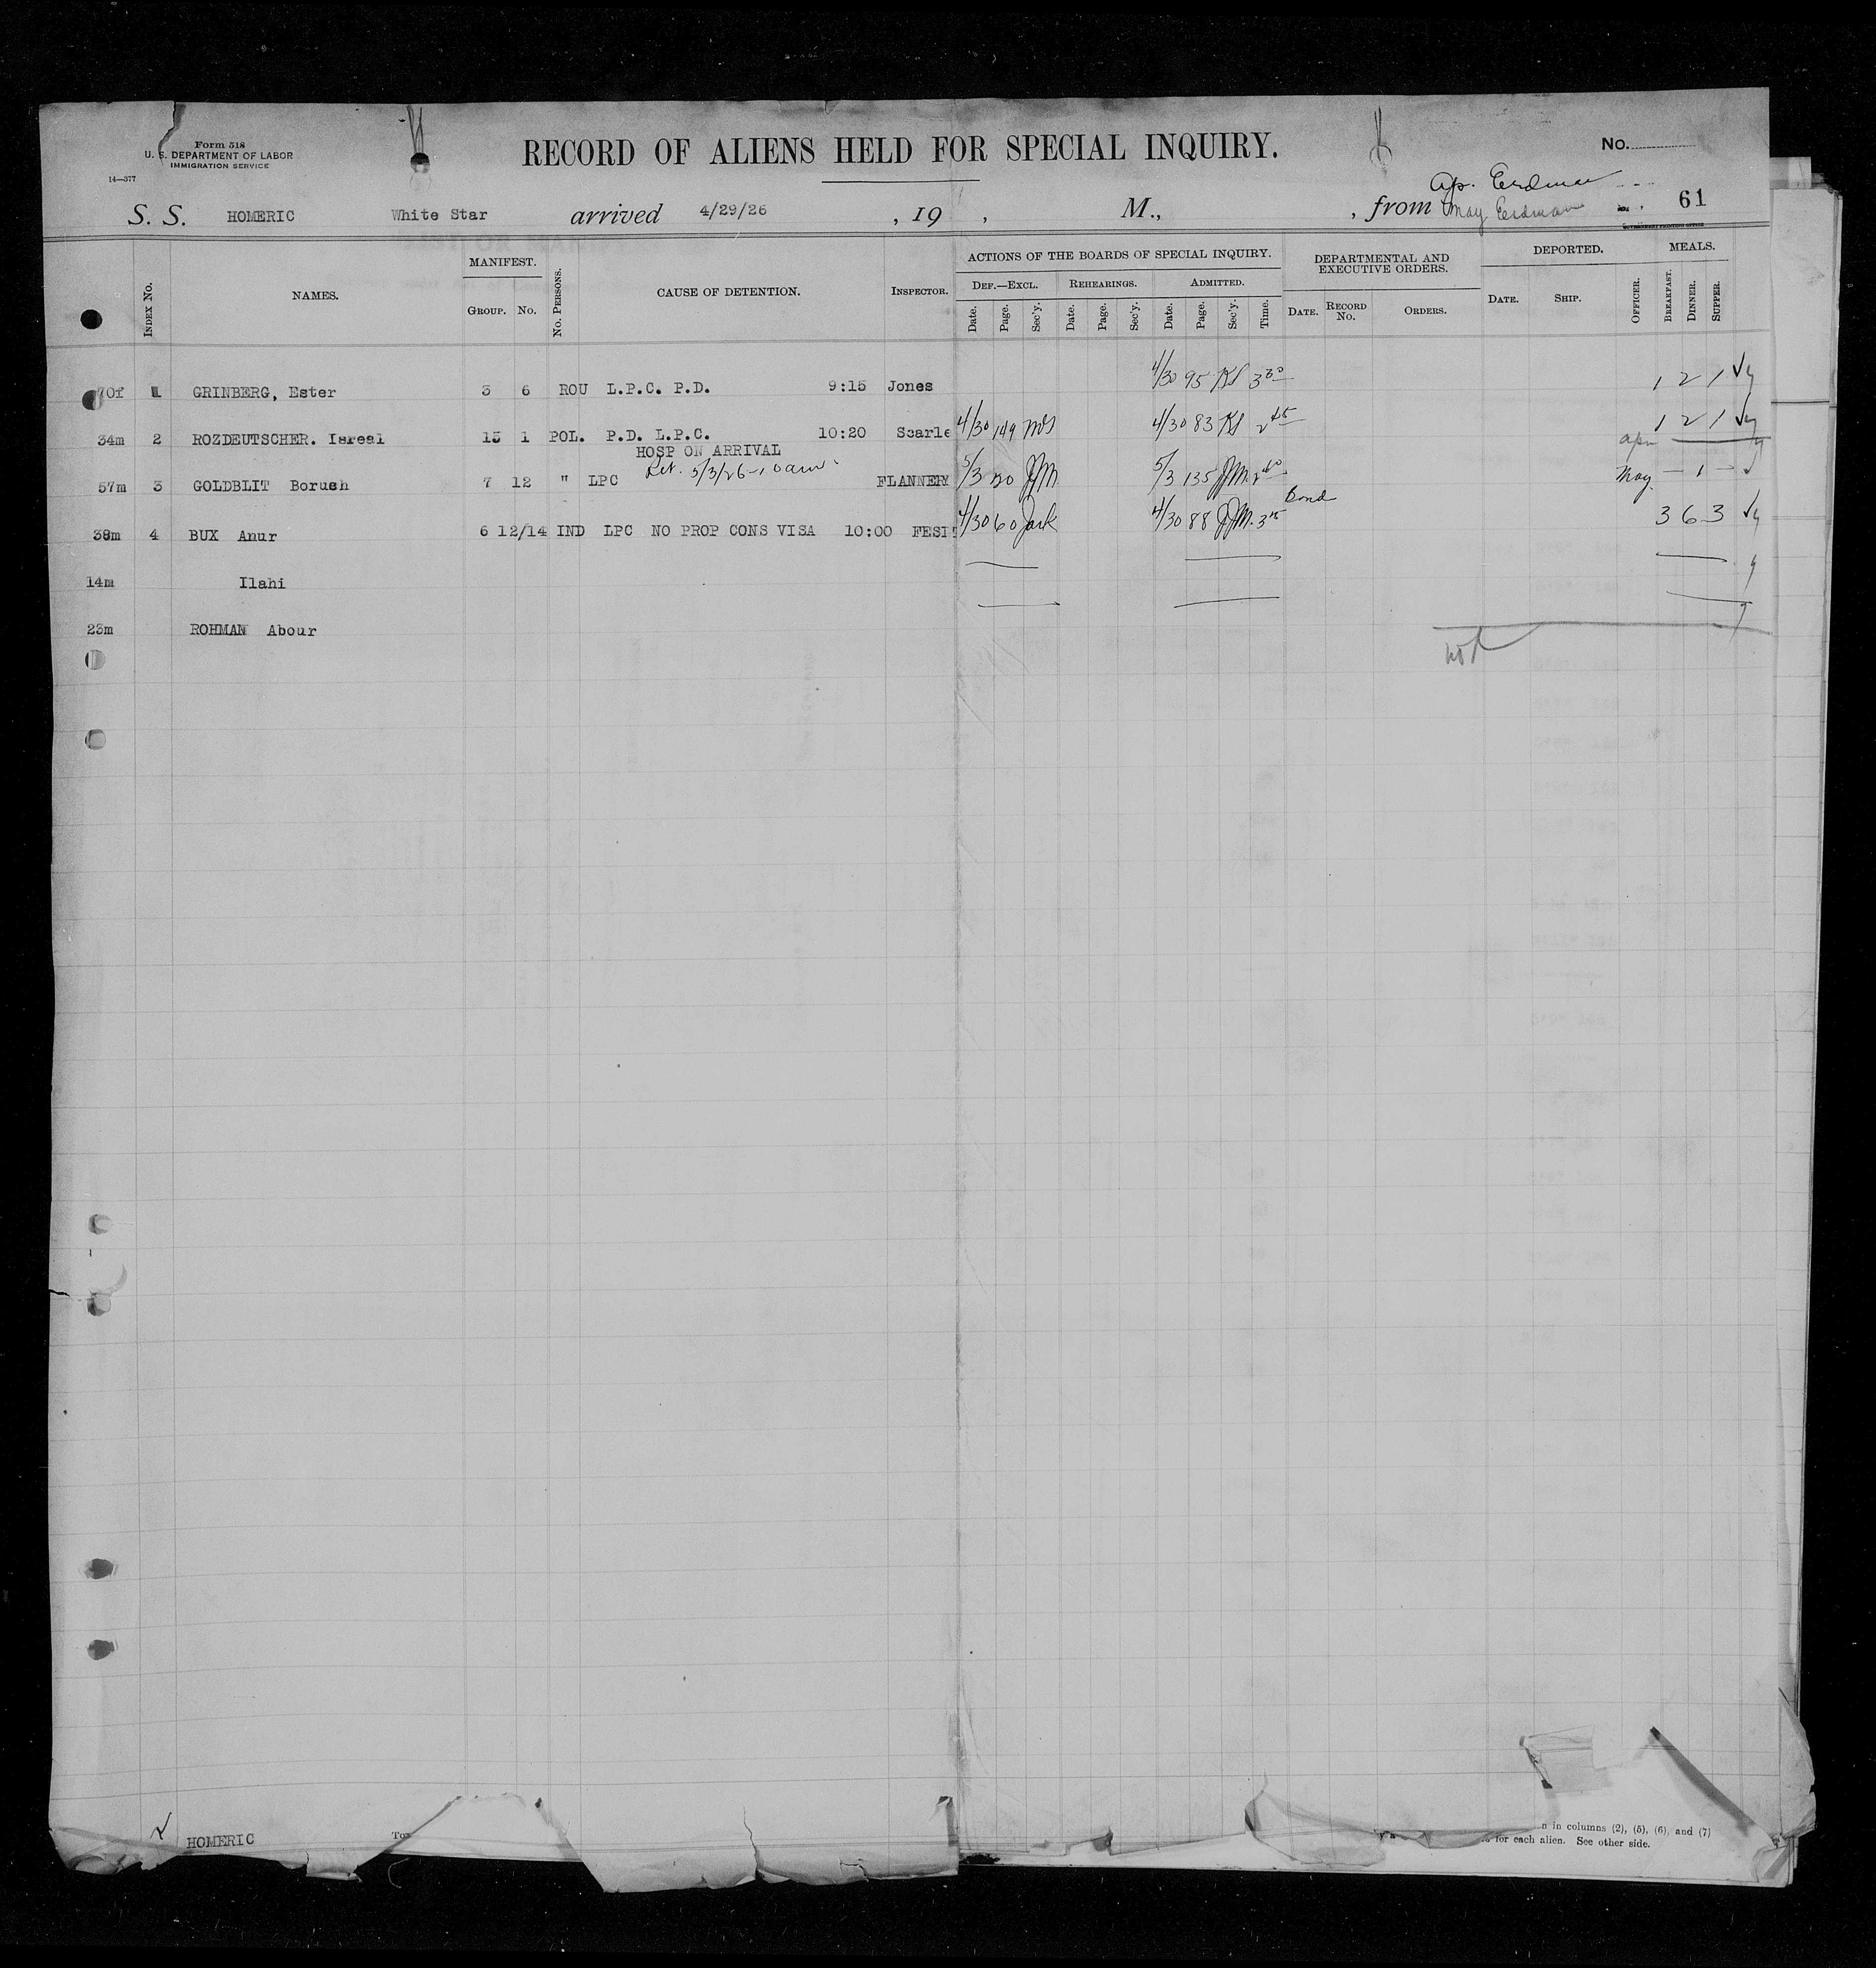 Form 518
U. S. DEPARTMENT OF LABOR
IMMIGRATION SERVICE
14—377
RECORD OF ALIENS HELD FOR SPECIAL INQUIRY.
No.
Ap. Erdman
S. S. HOMERIC White Star arrived 4/29/26 , 19 , M., , from May Erdman 61
GOVERNMENT PRINTING OFFICE
INDEX No. NAMES. MANIFEST. GROUP. No. No. PERSONS. CAUSE OF DETENTION. INSPECTOR. ACTIONS OF THE BOARDS OF SPECIAL INQUIRY. DEF.—EXCL. Date. Page. Sec'y. REHEARINGS. Date. Page. Sec'y. ADMITTED. Date. Page. Sec'y. Time. DEPARTMENTAL AND EXECUTIVE ORDERS. DATE. RECORD No. ORDERS. DEPORTED. DATE. SHIP. OFFICER. MEALS. BREAKFAST. DINNER. SUPPER.
70f 1 GRINBERG, Ester 3 6 ROU L.P.C. P.D. 9:15 Jones 4/30 95 KS 3 30 1 2 1
34m 2 ROZDEUTSCHER. Isreal 15 1 POL. P.D. L.P.C. 10:20 Scarle 4/30 149 4/30 83 KS 2 45 1 2 1
HOSP ON ARRIVAL
Apr
57m 3 GOLDBLIT Borush 7 12 " LPC 5/3/26-10am FLANNERY 5/3 20 JM 5/3 135 JM 2 40 May — 1 —
Bond
38m 4 BUX Anur 6 12/14 IND LPC NO PROP CONS VISA 10:00 FESI 4/30 60 4/30 88 JM 3 6 3
14m Ilahi
23m ROHMAN Abour
HOMERIC
n in columns (2), (5), (6), and (7)
for each alien. See other side.